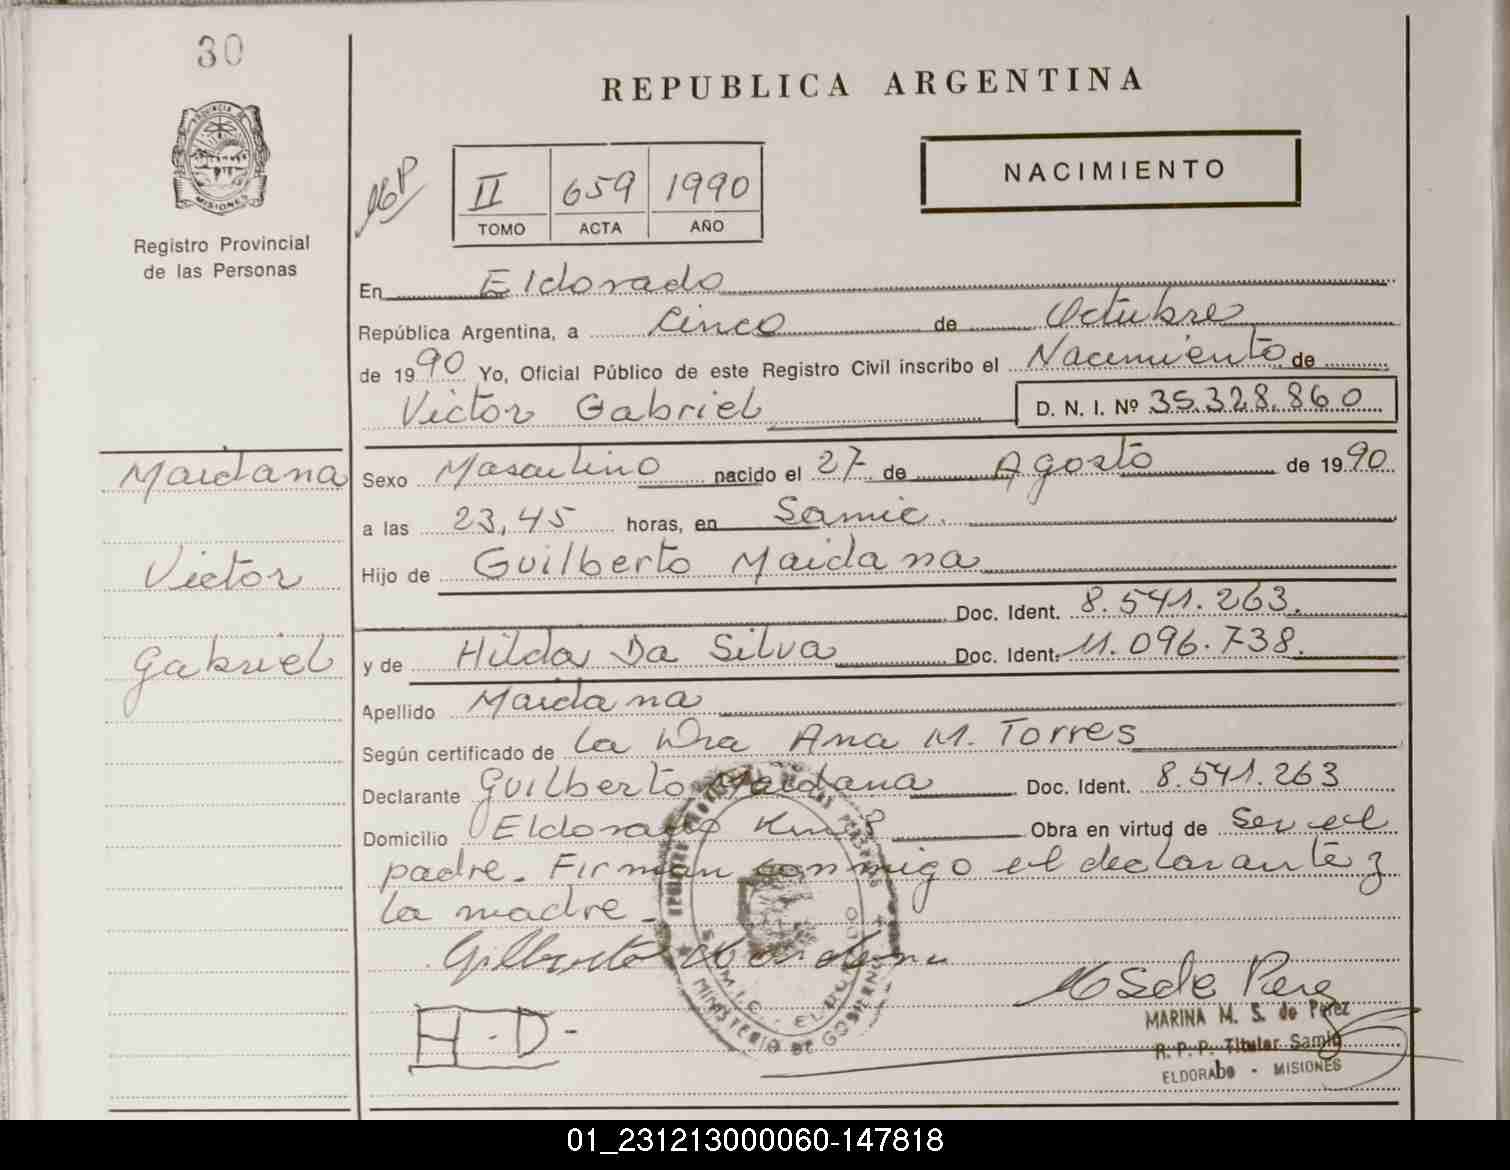 30
REPUBLICA ARGENTINA
PROVINCIA DE
MISIONES
Registro Provincial
de las Personas
II 659 1990
TOMO ACTA AÑO
NACIMIENTO
En Eldorado
República Argentina, a Cinco de Octubre
de 1990 Yo, Oficial Público de este Registro Civil inscribo el Nacimiento de
Victor Gabriel D. N. I. Nº 35.328.860
Maidana
Victor
Gabriel
Sexo Masculino nacido el 27 de Agosto de 1990
a las 23,45 horas, en Samic.
Hijo de Guilberto Maidana
Doc. Ident. 8.541.263.
y de Hilda Da Silva Doc. Ident. 11.096.738.
Apellido Maidana
Según certificado de La Dra Ana M. Torres
Declarante Guilberto Maidana Doc. Ident. 8.541.263
Domicilio Eldorado Km Obra en virtud de Ser el
padre. Firman conmigo el declarante y
la madre.
Gilberto Maidana
H.D-
MINISTERIO DE GOBIERNO
MARINA M. S. de Perez
R. P. P. Titular Samic
ELDORADO - MISIONES
01_231213000060-147818